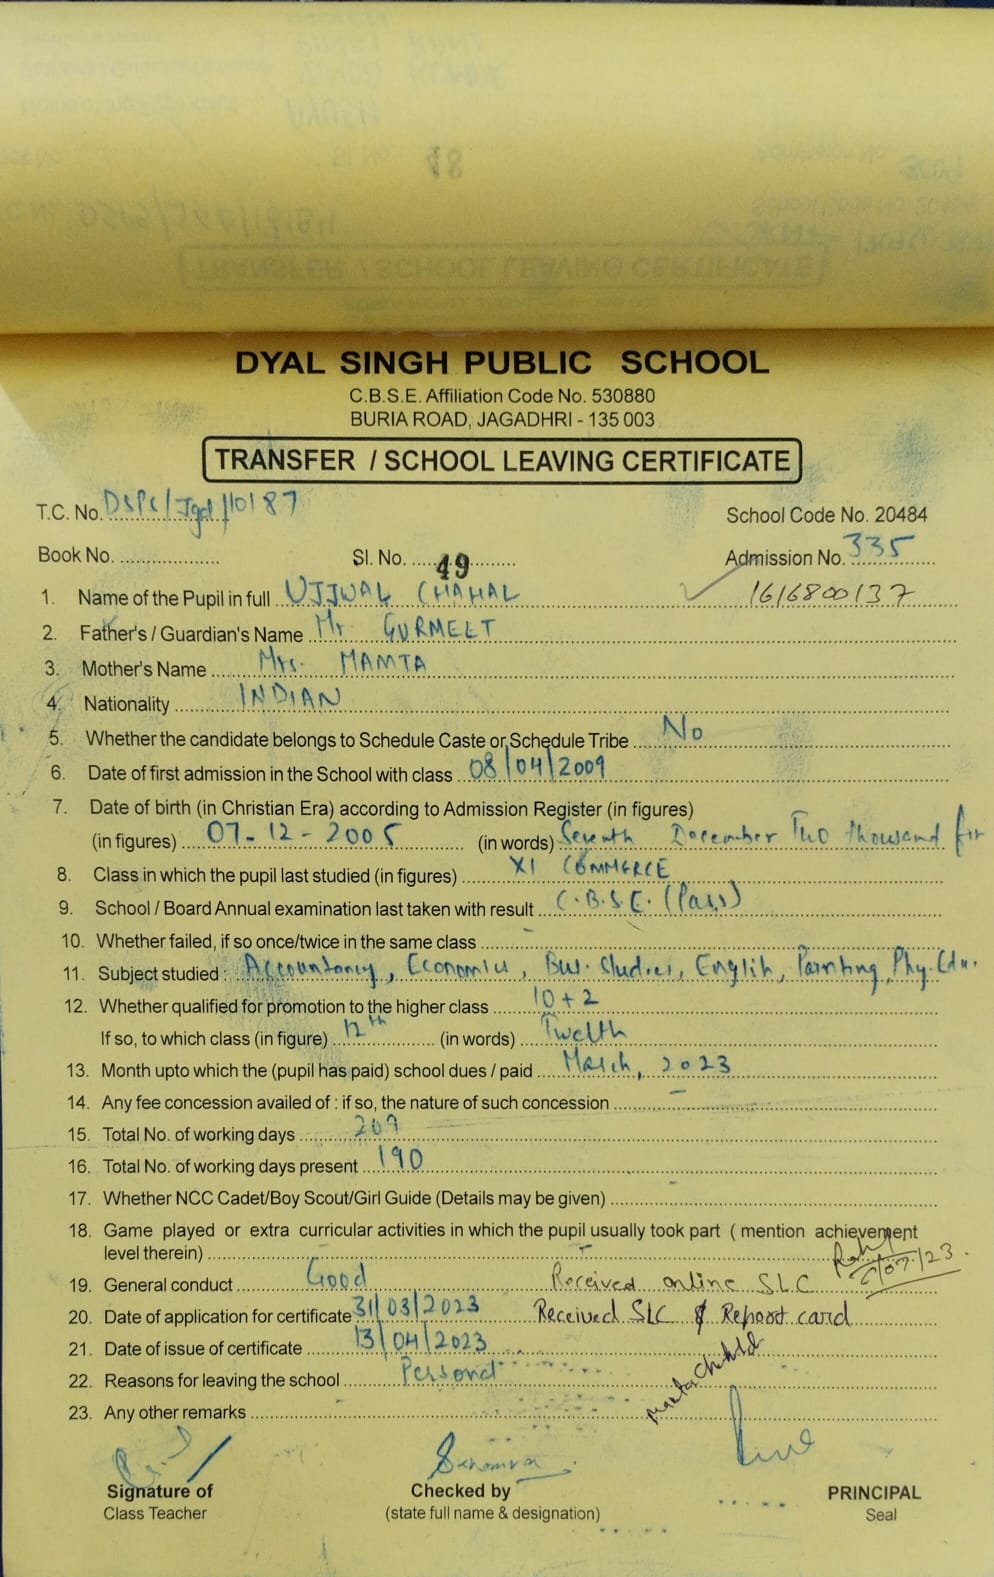 DYAL SINGH PUBLIC SCHOOL
C.B.S.E. Affiliation Code No. 530880
BURIA ROAD, JAGADHRI - 135 003
TRANSFER / SCHOOL LEAVING CERTIFICATE
T.C. No. DSPS/Jgd/10187
School Code No. 20484
Book No. Sl. No. 49 Admission No. 335
1. Name of the Pupil in full UJJWAL CHAHAL 1616800137
2. Father's / Guardian's Name Mr GURMEET
3. Mother's Name Mrs. MAMTA
4. Nationality INDIAN
5. Whether the candidate belongs to Schedule Caste or Schedule Tribe No
6. Date of first admission in the School with class 08/04/2009
7. Date of birth (in Christian Era) according to Admission Register (in figures)
(in figures) 07-12-2005 (in words) Seventh December Two thousand five
8. Class in which the pupil last studied (in figures) XI COMMERCE
9. School / Board Annual examination last taken with result C.B.S.E. (Pass)
10. Whether failed, if so once/twice in the same class -
11. Subject studied : Accountancy, Economics, Bus. Studies, English, Painting, Phy. Edu.
12. Whether qualified for promotion to the higher class 10+2
If so, to which class (in figure) 12th (in words) Twelth
13. Month upto which the (pupil has paid) school dues / paid March, 2023
14. Any fee concession availed of : if so, the nature of such concession -
15. Total No. of working days 207
16. Total No. of working days present 190
17. Whether NCC Cadet/Boy Scout/Girl Guide (Details may be given) -
18. Game played or extra curricular activities in which the pupil usually took part ( mention achievement
level therein) -
19. General conduct Good Received online SLC /07/23.
20. Date of application for certificate 31/03/2023 Received SLC & Report card
21. Date of issue of certificate 13/04/2023
22. Reasons for leaving the school Personal
23. Any other remarks
Signature of Checked by PRINCIPAL
Class Teacher (state full name & designation) Seal